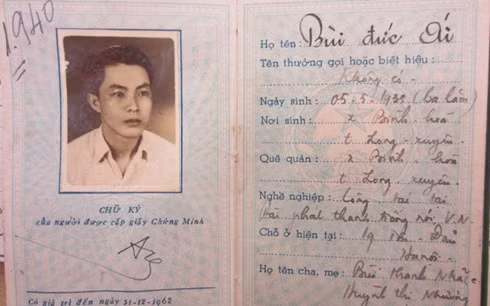 1.940
CHỮ KÝ
của người được cấp giấy Chứng Minh
Có giá trị đến ngày 31-12-1962
Họ tên: Bùi đức Ái
Tên thường gọi hoặc biệt hiệu:
Không có
Ngày sinh: 05-5-1935 (ba lăm)
Nơi sinh: x Bình hòa
t Long-xuyên
Quê quán: x Bình hòa
t Long xuyên
Nghề nghiệp: Công tác tại
Đài phát thanh tiếng nói V.N
Chỗ ở hiện tại: 19
Hanoi
Họ tên cha, mẹ: Bùi
Huỳnh thị